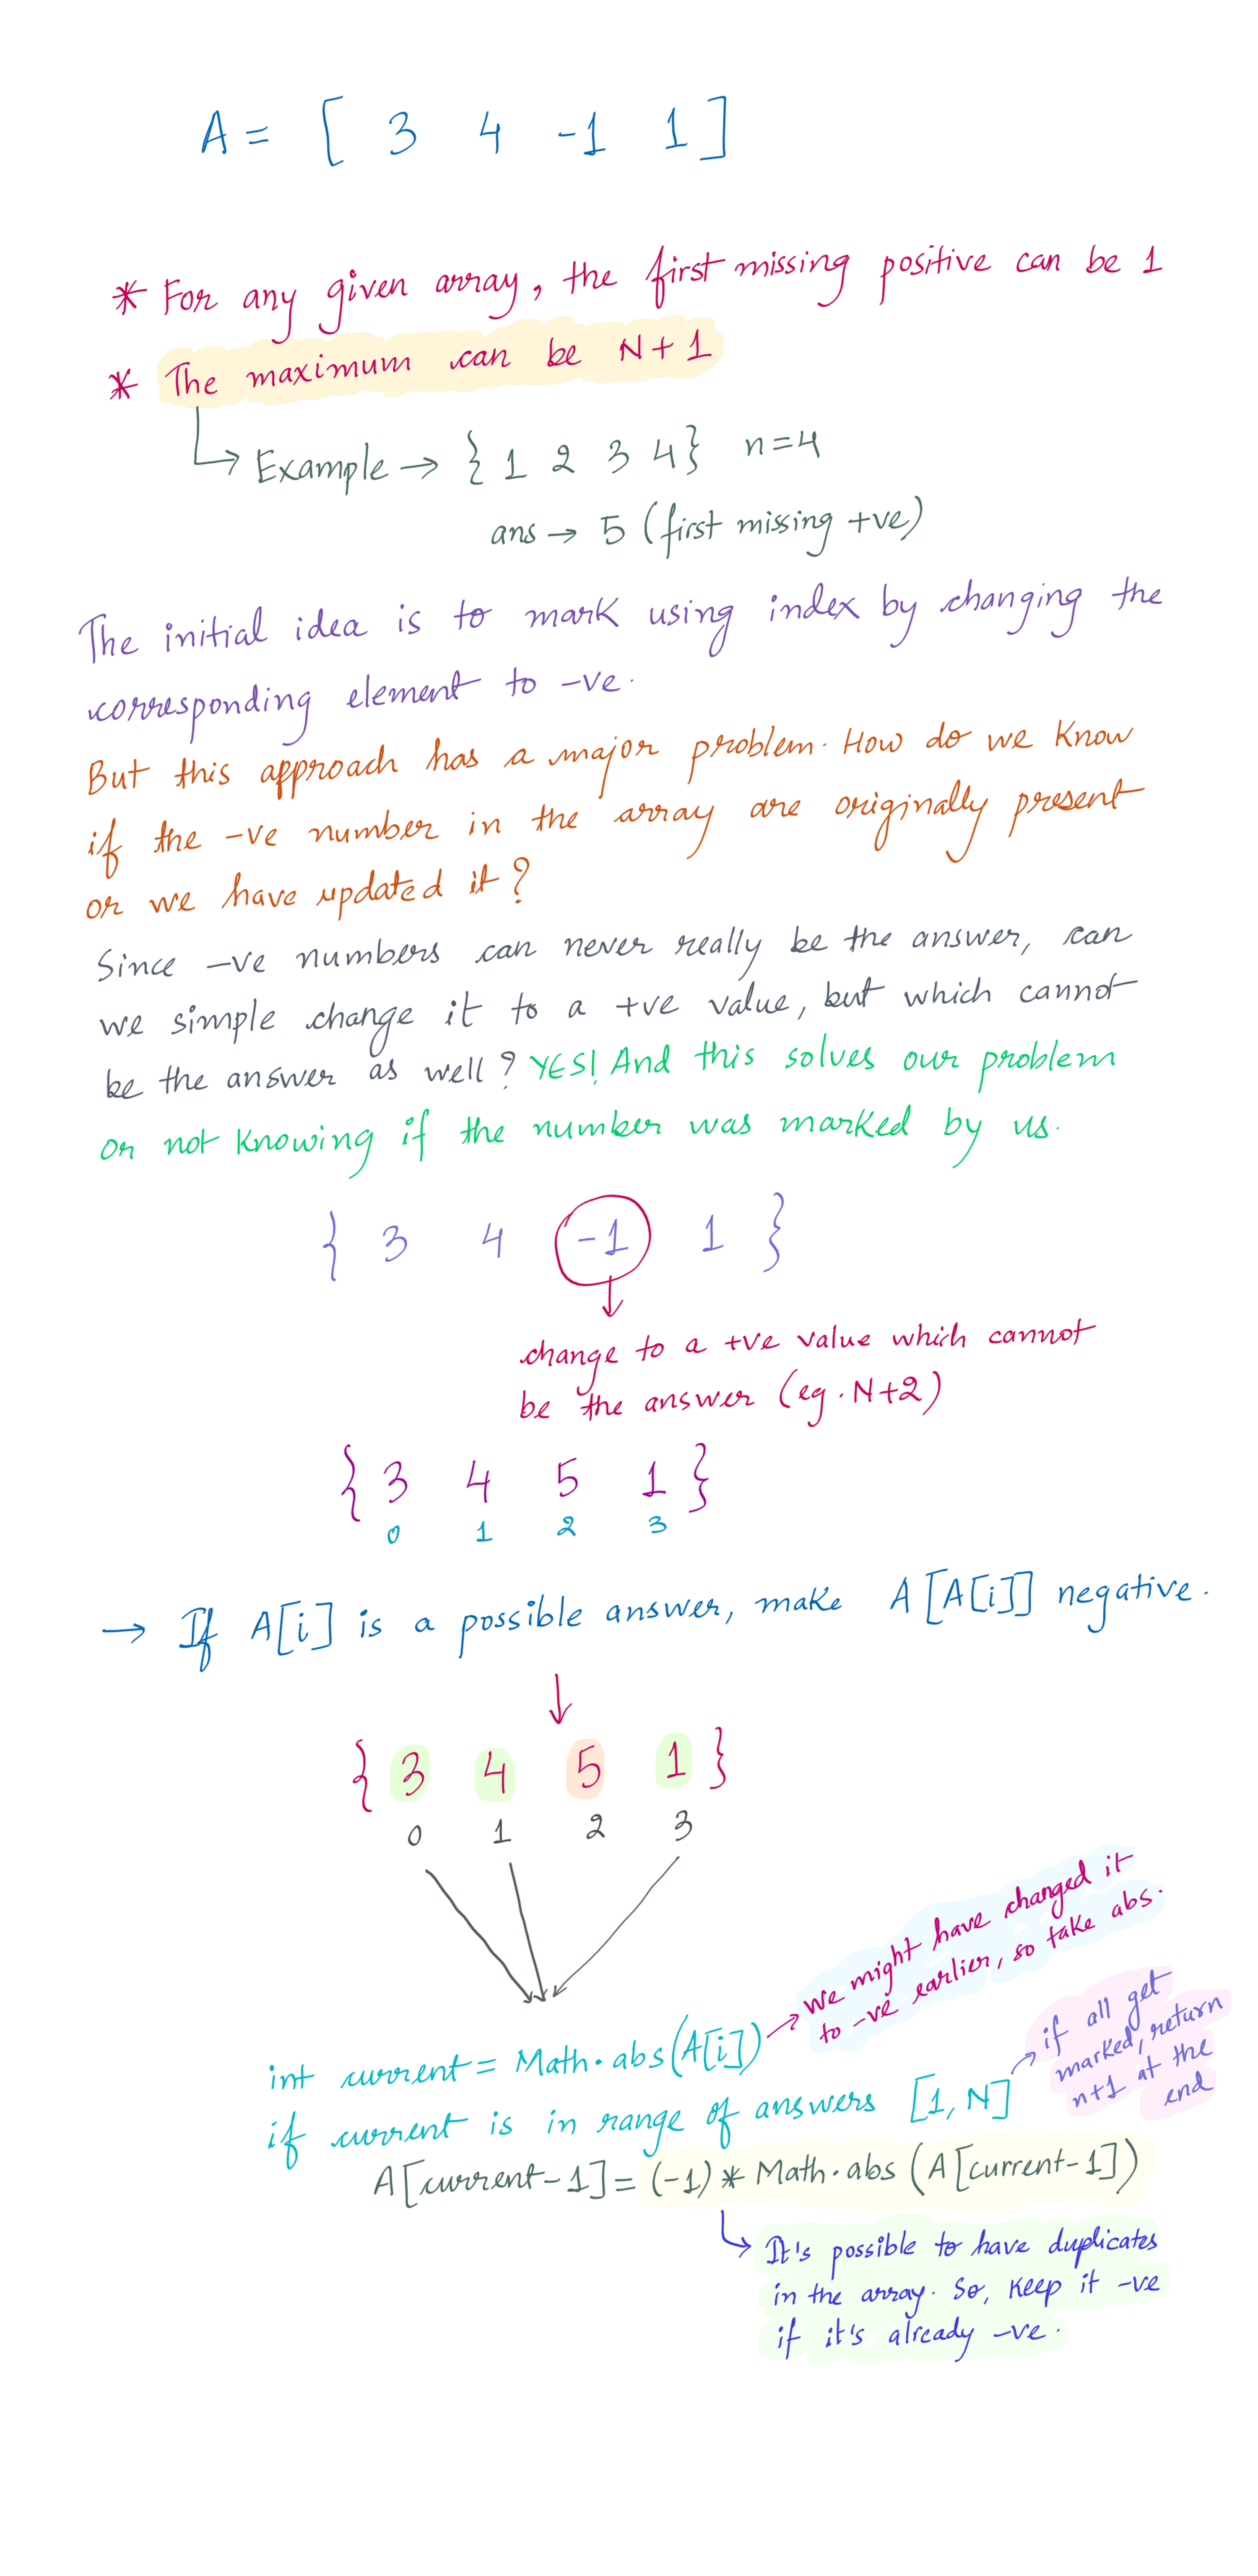 A = [ 3 4 -1 1 ]
* For any given array, the first missing positive can be 1
* The maximum can be N+1
Example → { 1 2 3 4 } n=4
ans → 5 (first missing +ve)
The initial idea is to mark using index by changing the
corresponding element to -ve.
But this approach has a major problem. How do we know
if the -ve number in the array are originally present
or we have updated it?
Since -ve numbers can never really be the answer, can
we simple change it to a +ve value, but which cannot
be the answer as well? YES! And this solves our problem
or not knowing if the number was marked by us.
{ 3 4 -1 1 }
change to a +ve value which cannot
be the answer (eg. N+2)
{ 3 4 5 1 }
0 1 2 3
→ If A[i] is a possible answer, make A[A[i]] negative.
{ 3 4 5 1 }
0 1 2 3
int current = Math.abs(A[i])
→ we might have changed it
to -ve earlier, so take abs.
if current is in range of answers [1, N]
→ if all get
marked, return
n+1 at the
end
A[current-1] = (-1) * Math.abs (A[current-1])
It's possible to have duplicates
in the array. So, keep it -ve
if it's already -ve.